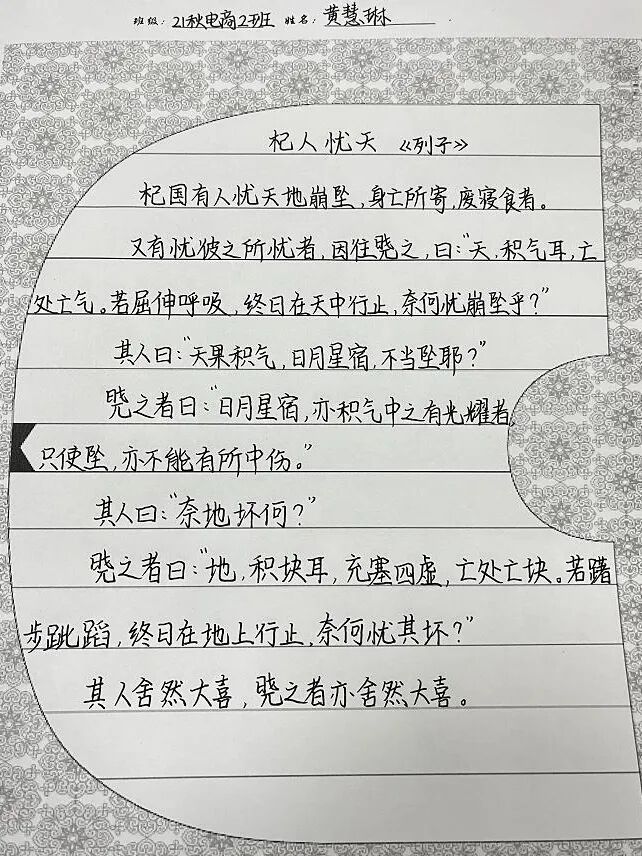 班级：21秋电商2班 姓名：黄慧琳
杞人忧天 《列子》
杞国有人忧天地崩坠，身亡所寄，废寝食者。
又有忧彼之所忧者，因往晓之，曰：“天，积气耳，亡
处亡气。若屈伸呼吸，终日在天中行止，奈何忧崩坠乎？”
其人曰：“天果积气，日月星宿，不当坠耶？”
晓之者曰：“日月星宿，亦积气中之有光耀者，
只使坠，亦不能有所中伤。”
其人曰：“奈地坏何？”
晓之者曰：“地，积块耳，充塞四虚，亡处亡块。若躇
步跐蹈，终日在地上行止，奈何忧其坏？”
其人舍然大喜，晓之者亦舍然大喜。